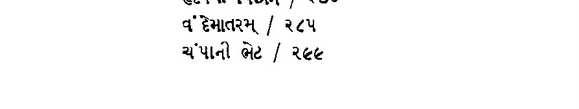 વંદેમાતરમ્ / ૨૮૫
ચંપાની ભેટ / ૨૯૯